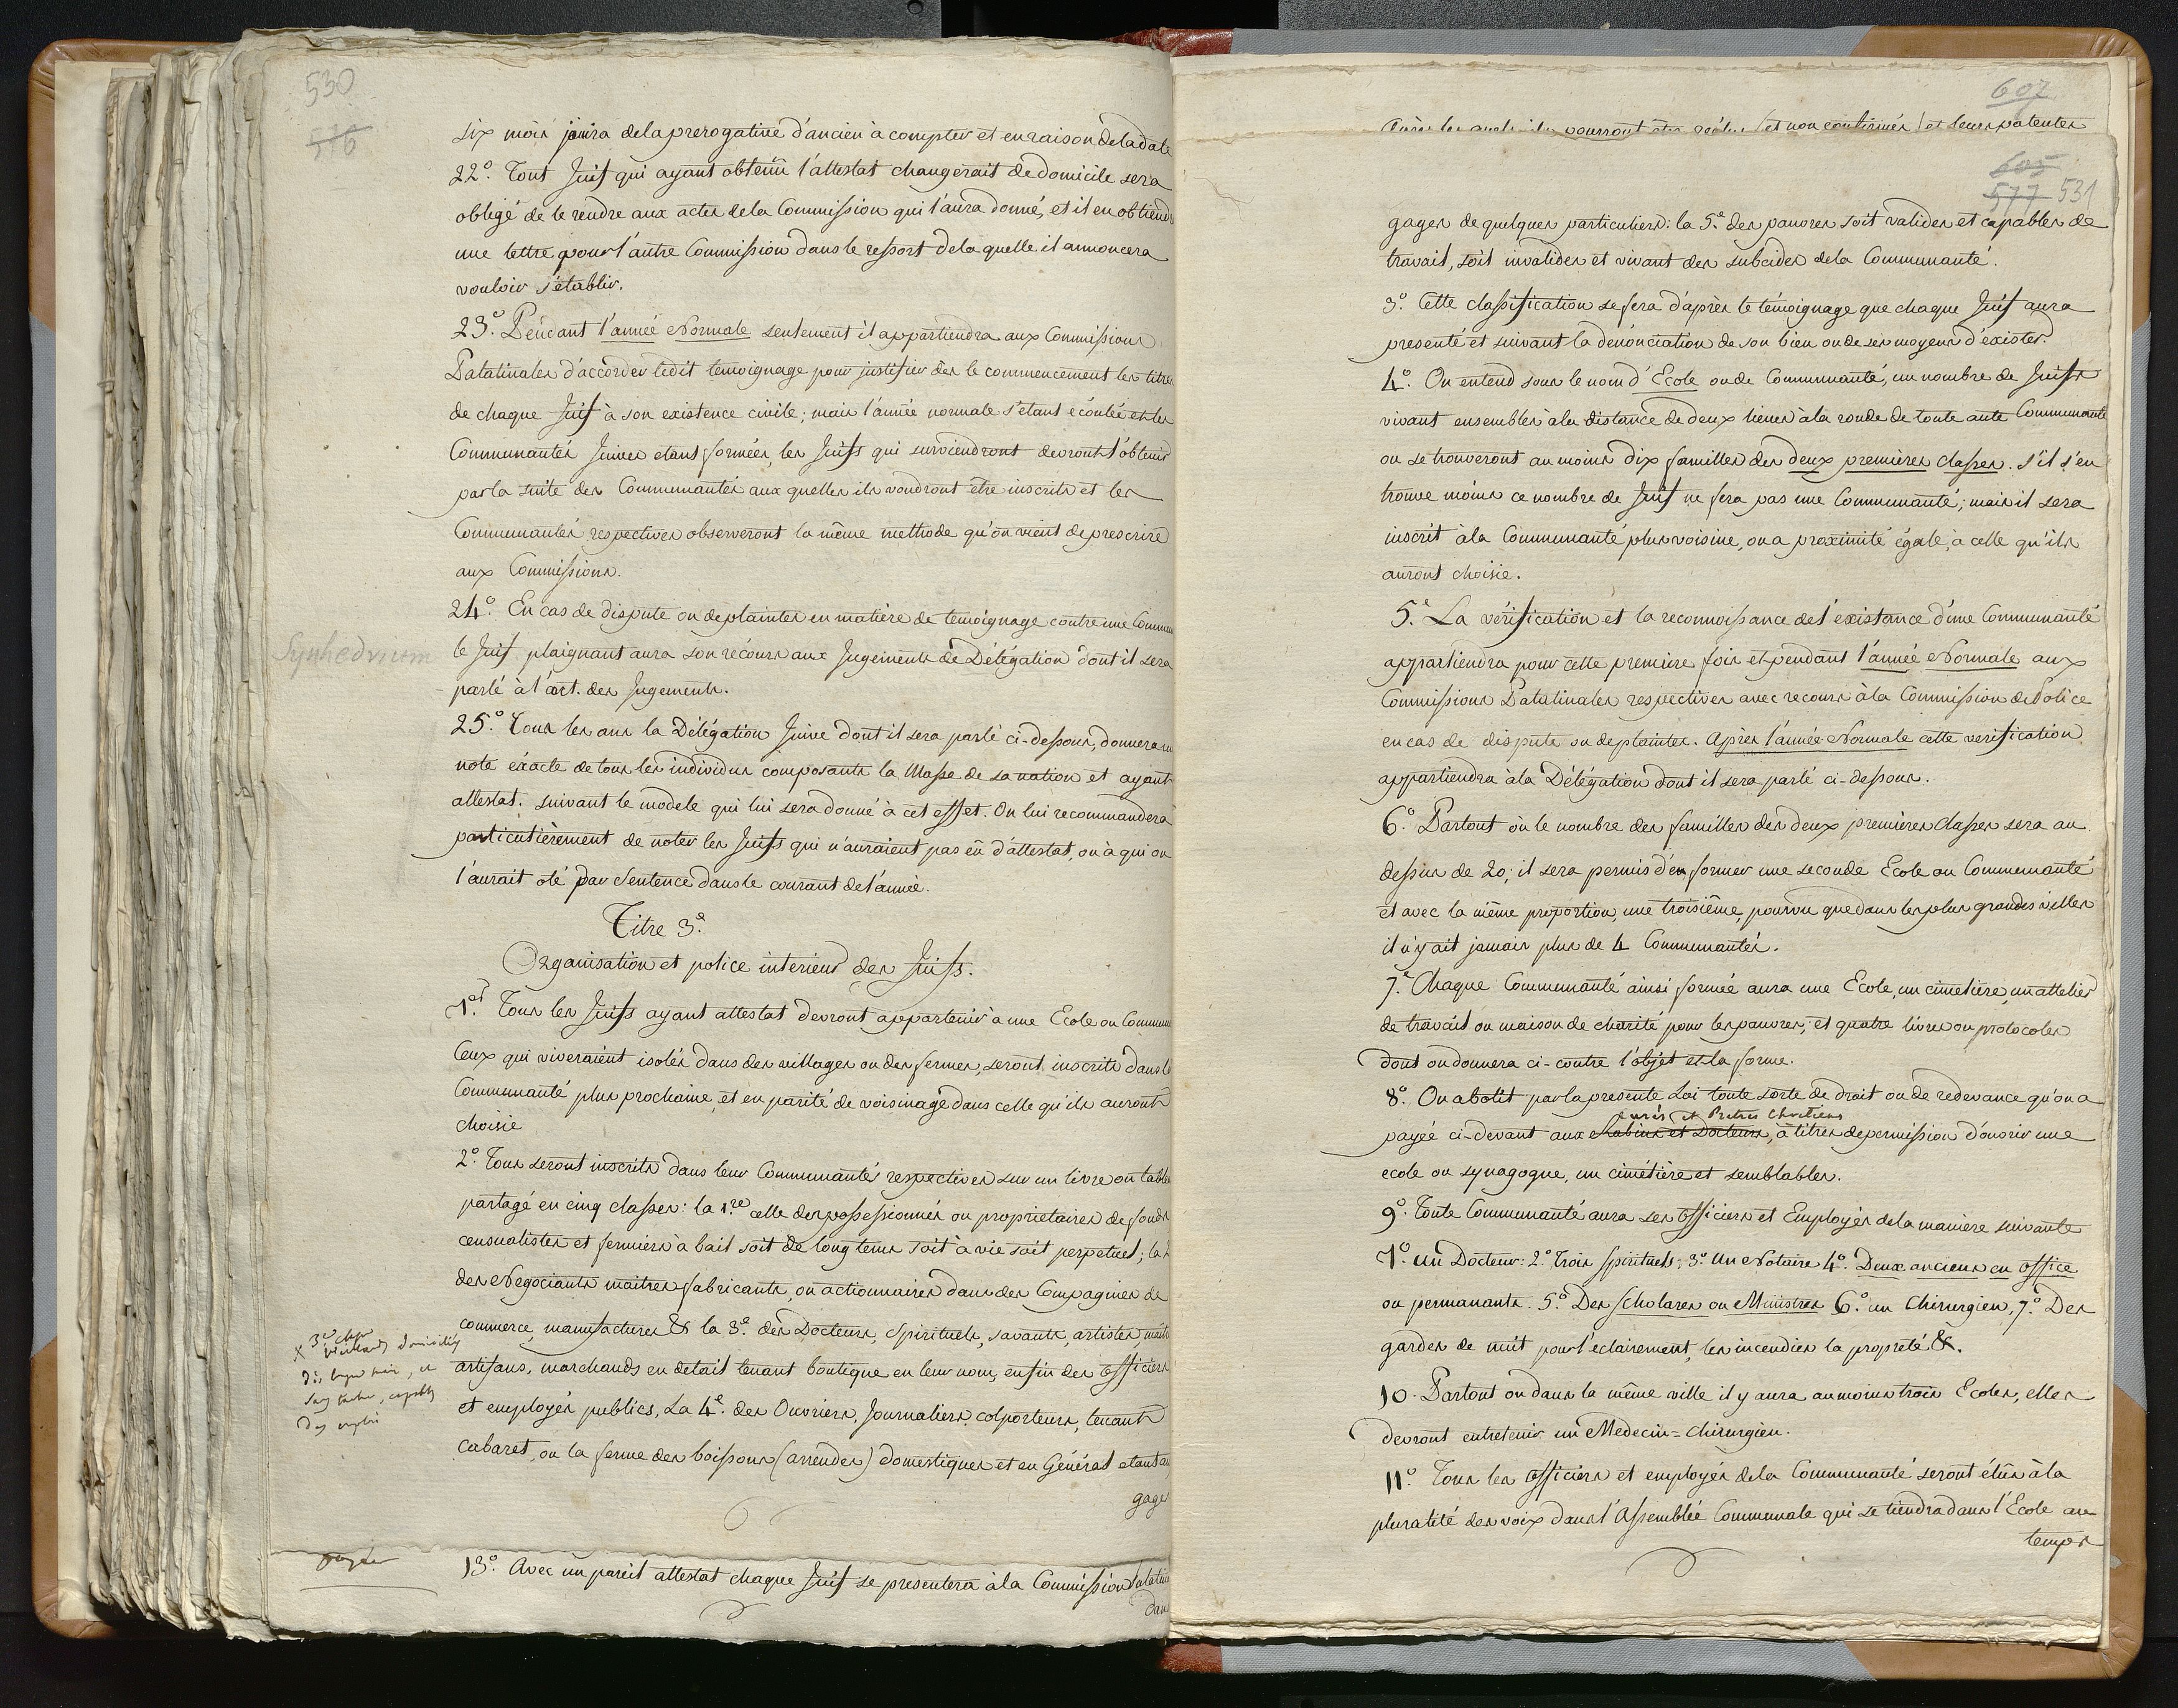 530
516
six mois jouira dela prerogative d'ancien à compter et en raison dela date
22.° Tout Juif qui ayant obtenu l'attestat changerait de domicile sera
obligé de le rendre aux actes dela Commission qui l'aura donné, et il en obtiendr
une lettre pour l'autre Commission dans le ressort dela quelle il annoncera
vouloir s'établir.
23.° Pendant l'année Normale seulement il appartiendra aux Commissions
Palatinales d'accorder ledit temoignage pour justifier des le commencement les titres
de chaque Juif à son existence civile; mais l'année normale s'etant écoulée et les
Communautés Juives etant formées, les Juifs qui surviendront devront l'obtenir
par la suite des Communautés aux quelles ils voudront être inscrits et les
Communautés respectives observeront la même methode qu'on vient de prescrire
aux Commissions.
24.° En cas de dispute ou de plaintes en matière de temoignage contre une Commun
Synhedrium
le Juif plaignant aura son récours aux Jugements de Délégation dont il sera
parlé à l'art. des Jugements.
25.° Tous les ans la Délégation Juive dont il sera parlé ci-dessous, donnera un
note éxacte de tous les individus composants la Masse de sa nation et ayant
attestat. suivant le modele qui lui sera donné à cet effet. On lui recommandera
particulièrement de noter les Juifs qui n'auraient pas eû d'attestat, ou à qui on
l'aurait oté par Sentence dans le courant de l'année.
Titre 3.e
Organisation et police interieur des Juifs.
1.er Tous les Juifs ayant attestat devront appartenir à une Ecole ou Commun
Ceux qui viveraient isolés dans des villages ou des fermes, seront inscrits dans l
Communauté plus prochaine, et en parité de voisinage dans celle qu'ils auront
choisie
2.° Tous seront inscrits dans leur Communautés respectives sur un livre ou table
partagé en cinq classes: la 1.re celle des possessionnés ou proprietaires de fonds
censualistes et fermiers à bail soit de long tems soit à vie soit perpetuel; la
des Negociants maitres fabricants, ou actionnaires dans des Compagnies de
commerce, manufactures &. la 3.e des Docteurs, Spirituels, savants, artistes, maitr
x 3.e
artisans, marchands en detail tenant boutique en leur nom, enfin des officiers
et employés publics, La 4.e des Ouvriers, Journaliers, colporteurs, tenants
Cabaret, ou la ferme des boissons (arrendes) domestiques et en Général etant au
gages
13.° Avec un pareil attestat chaque Juif se presentera à la Commission Palatina
dans
607
pourront être (et non confirmés) et leurs patentes
605
577 531
gages de quelques particuliers: la 5.e des pauvres soit valides et capables de
travail, soit invalides et vivant des subcides dela Communauté.
3.° Cette classification se fera d'après le témoignage que chaque Juif aura
presenté et suivant la dénonciation de son bien ou de ses moyens d'éxister.
4.° On entend sous le nom d'Ecole ou de Communauté, un nombre de Juifs
vivant ensembles à la distance de deux lieues à la ronde de toute autre Communauté
ou se trouveront au moins dix familles des deux premieres classes. s'il s'en
trouve moins ce nombre de Juif ne fera pas une Communauté; mais il sera
inscrit à la Communauté plus voisine, ou a proximité égale, à celle qu'ils
auront choisie.
5.e La vérification et la reconnoissance de l'existance d'une Communauté
appartiendra pour cette premiere fois et pendant l'année Normale aux
Commissions Palatinales respectives avec recours à la Commission de Police
en cas de dispute ou de plaintes. Après l'année Normale cette verification
appartiendra à la Délégation dont il sera parlé ci-dessous.
6.° Partout où le nombre des familles des deux premieres classes sera au
dessus de 20; il sera permis d'en former une seconde Ecole ou Communauté
et avec la même proportion, une troisième, pourvu que dans les plus grandes villes
il n'y ait jamais plus de 4 Communautés.
7.e Chaque Communauté ainsi formée aura une Ecole, un cimetiere, un attelier
de travail ou maison de charité pour les pauvres, et quatre livres ou protocoles
dont on donnera ci-contre l'objet et la forme.
8.° On abolit par la presente Loi toute sorte de droit ou de redevance qu'on a
Curés et Pretres Chretiens
payée ci-devant aux Rabins et Docteurs, à titres de permission d'ouvrir une
ecole ou synagogue, un cimétière et semblables.
9.° Toute Communauté aura ses officiers et Employés dela maniere suivante
1.° un Docteur: 2.° Trois Spirituels, 3.° Un Notaire 4.° Deux anciens en office
ou permanants. 5.° Des Scholares ou Ministres 6.° un Chirurgien, 7.° Des
gardes de nuit pour l'éclairement, les incendies la propreté &.
10. Partout ou dans la même ville il y aura au moins trois Ecoles, elles
devront entretenir un Medecin-Chirurgien.
11.° Tous les officiers et employés dela Communauté seront élus à la
pluralité des voix dans l'Assemblée Communale qui se tiendra dans l'Ecole au
temps